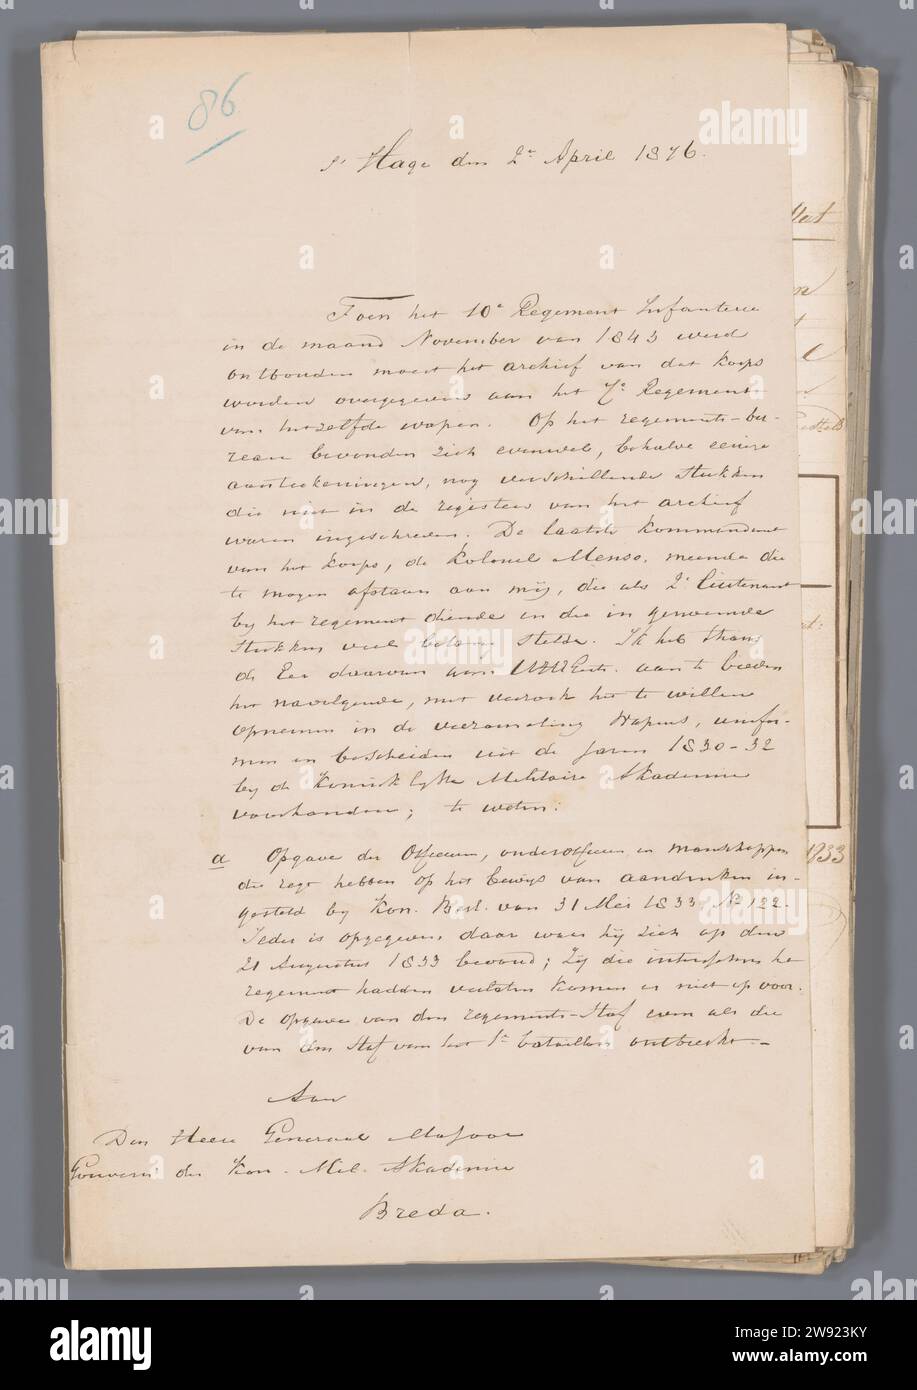 86
s' Hage den 2en April 1876.
Toen het 10e Regement Infanterie
in de maand November van 1843 werd
ontbonden moest het archief van dat korps
worden overgegeven aan het 7e Regement
van hetzelfde wapen. Op het regements-bu-
reau bevonden zich evenwel, behalve eenige
aanteekeningen, nog verschillende stukken
die niet in de registers van het archief
waren ingeschreven. De laatste kommandant
van het korps, de Kolonel Menso, meende die
te mogen afstaan aan mij, die als 2e Lieutenant
bij het regement diende en die in genoemde
stukken veel belang stelde. Ik heb thans
de Eer daarvan aan UHEG. aan te bieden
het navolgende, met verzoek het te willen
opnemen in de verzameling Wapens, unifor-
men en bescheiden uit de jaren 1830-32
bij de Koninklijke Militaire Akademie
voorhanden; te weten:
a Opgave der Officieren, onderofficieren en manschappen
die regt hebben op het bewijs van aandenken in-
gesteld bij Kon. Besl. van 31 Mei 1833 No 122.
Ieder is opgegeven daar waar hij zich op den
21 Augustus 1833 bevond; Zij die intusschen het
regement hadden verlaten komen er niet op voor.
De opgave van den regements-Staf even als die
van den Staf van het 1e bataillon ontbreekt.-
Aan
Den Heere Generaal Majoor
Gouvern' der Kon. Mil. Akademie
Breda.
1833
alamy
Image ID: 2W923KY
www.alamy.com